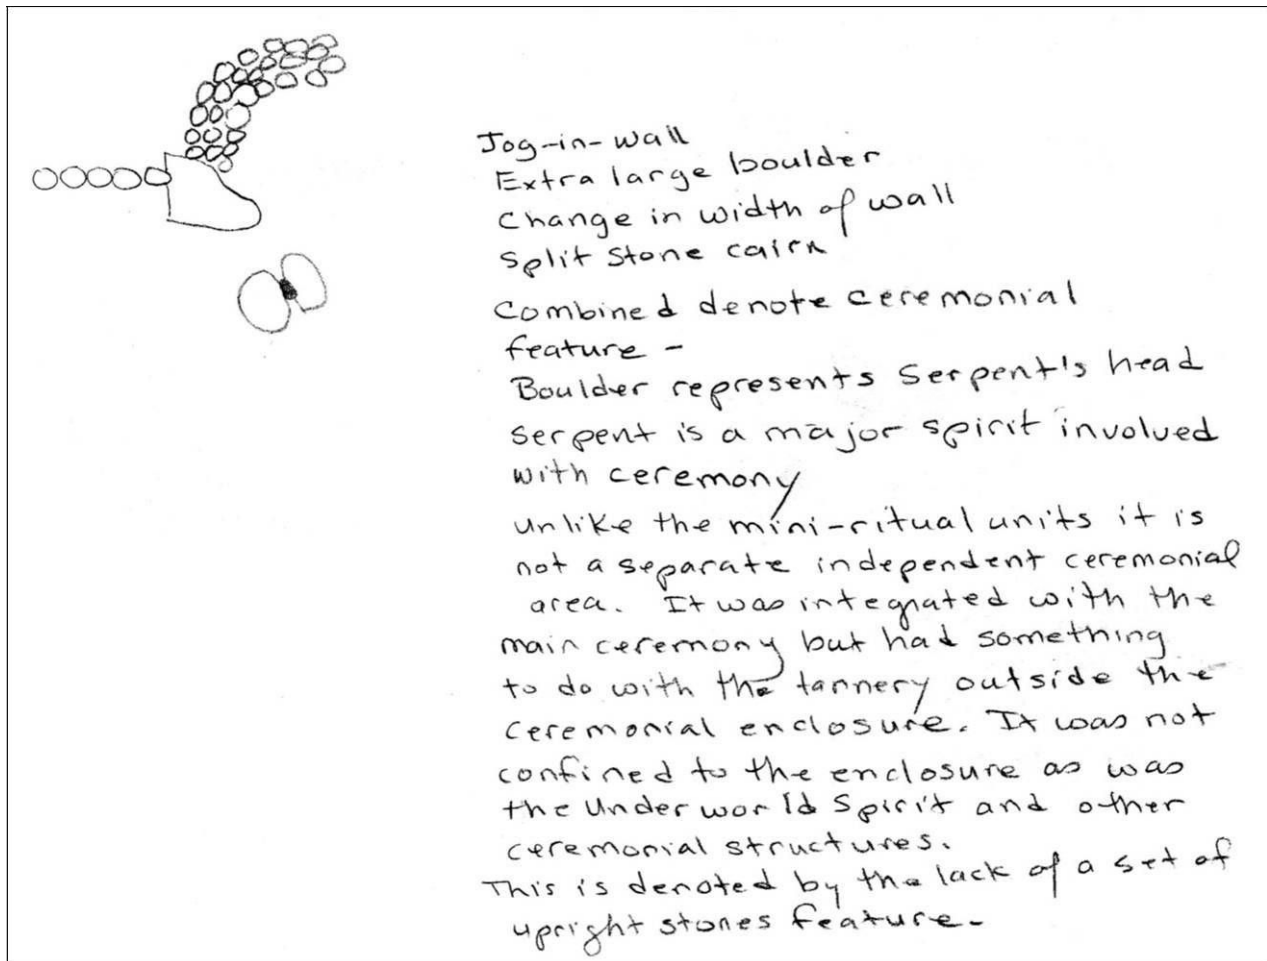 Jog-in-wall
Extra large boulder
Change in width of wall
Split Stone cairn
Combined denote ceremonial
feature -
Boulder represents Serpent's head
Serpent is a major spirit involved
with ceremony
unlike the mini-ritual units it is
not a separate independent ceremonial
area. It was integrated with the
main ceremony but had something
to do with the tannery outside the
ceremonial enclosure. It was not
confined to the enclosure as was
the Underworld Spirit and other
ceremonial structures.
This is denoted by the lack of a set of
upright stones feature.